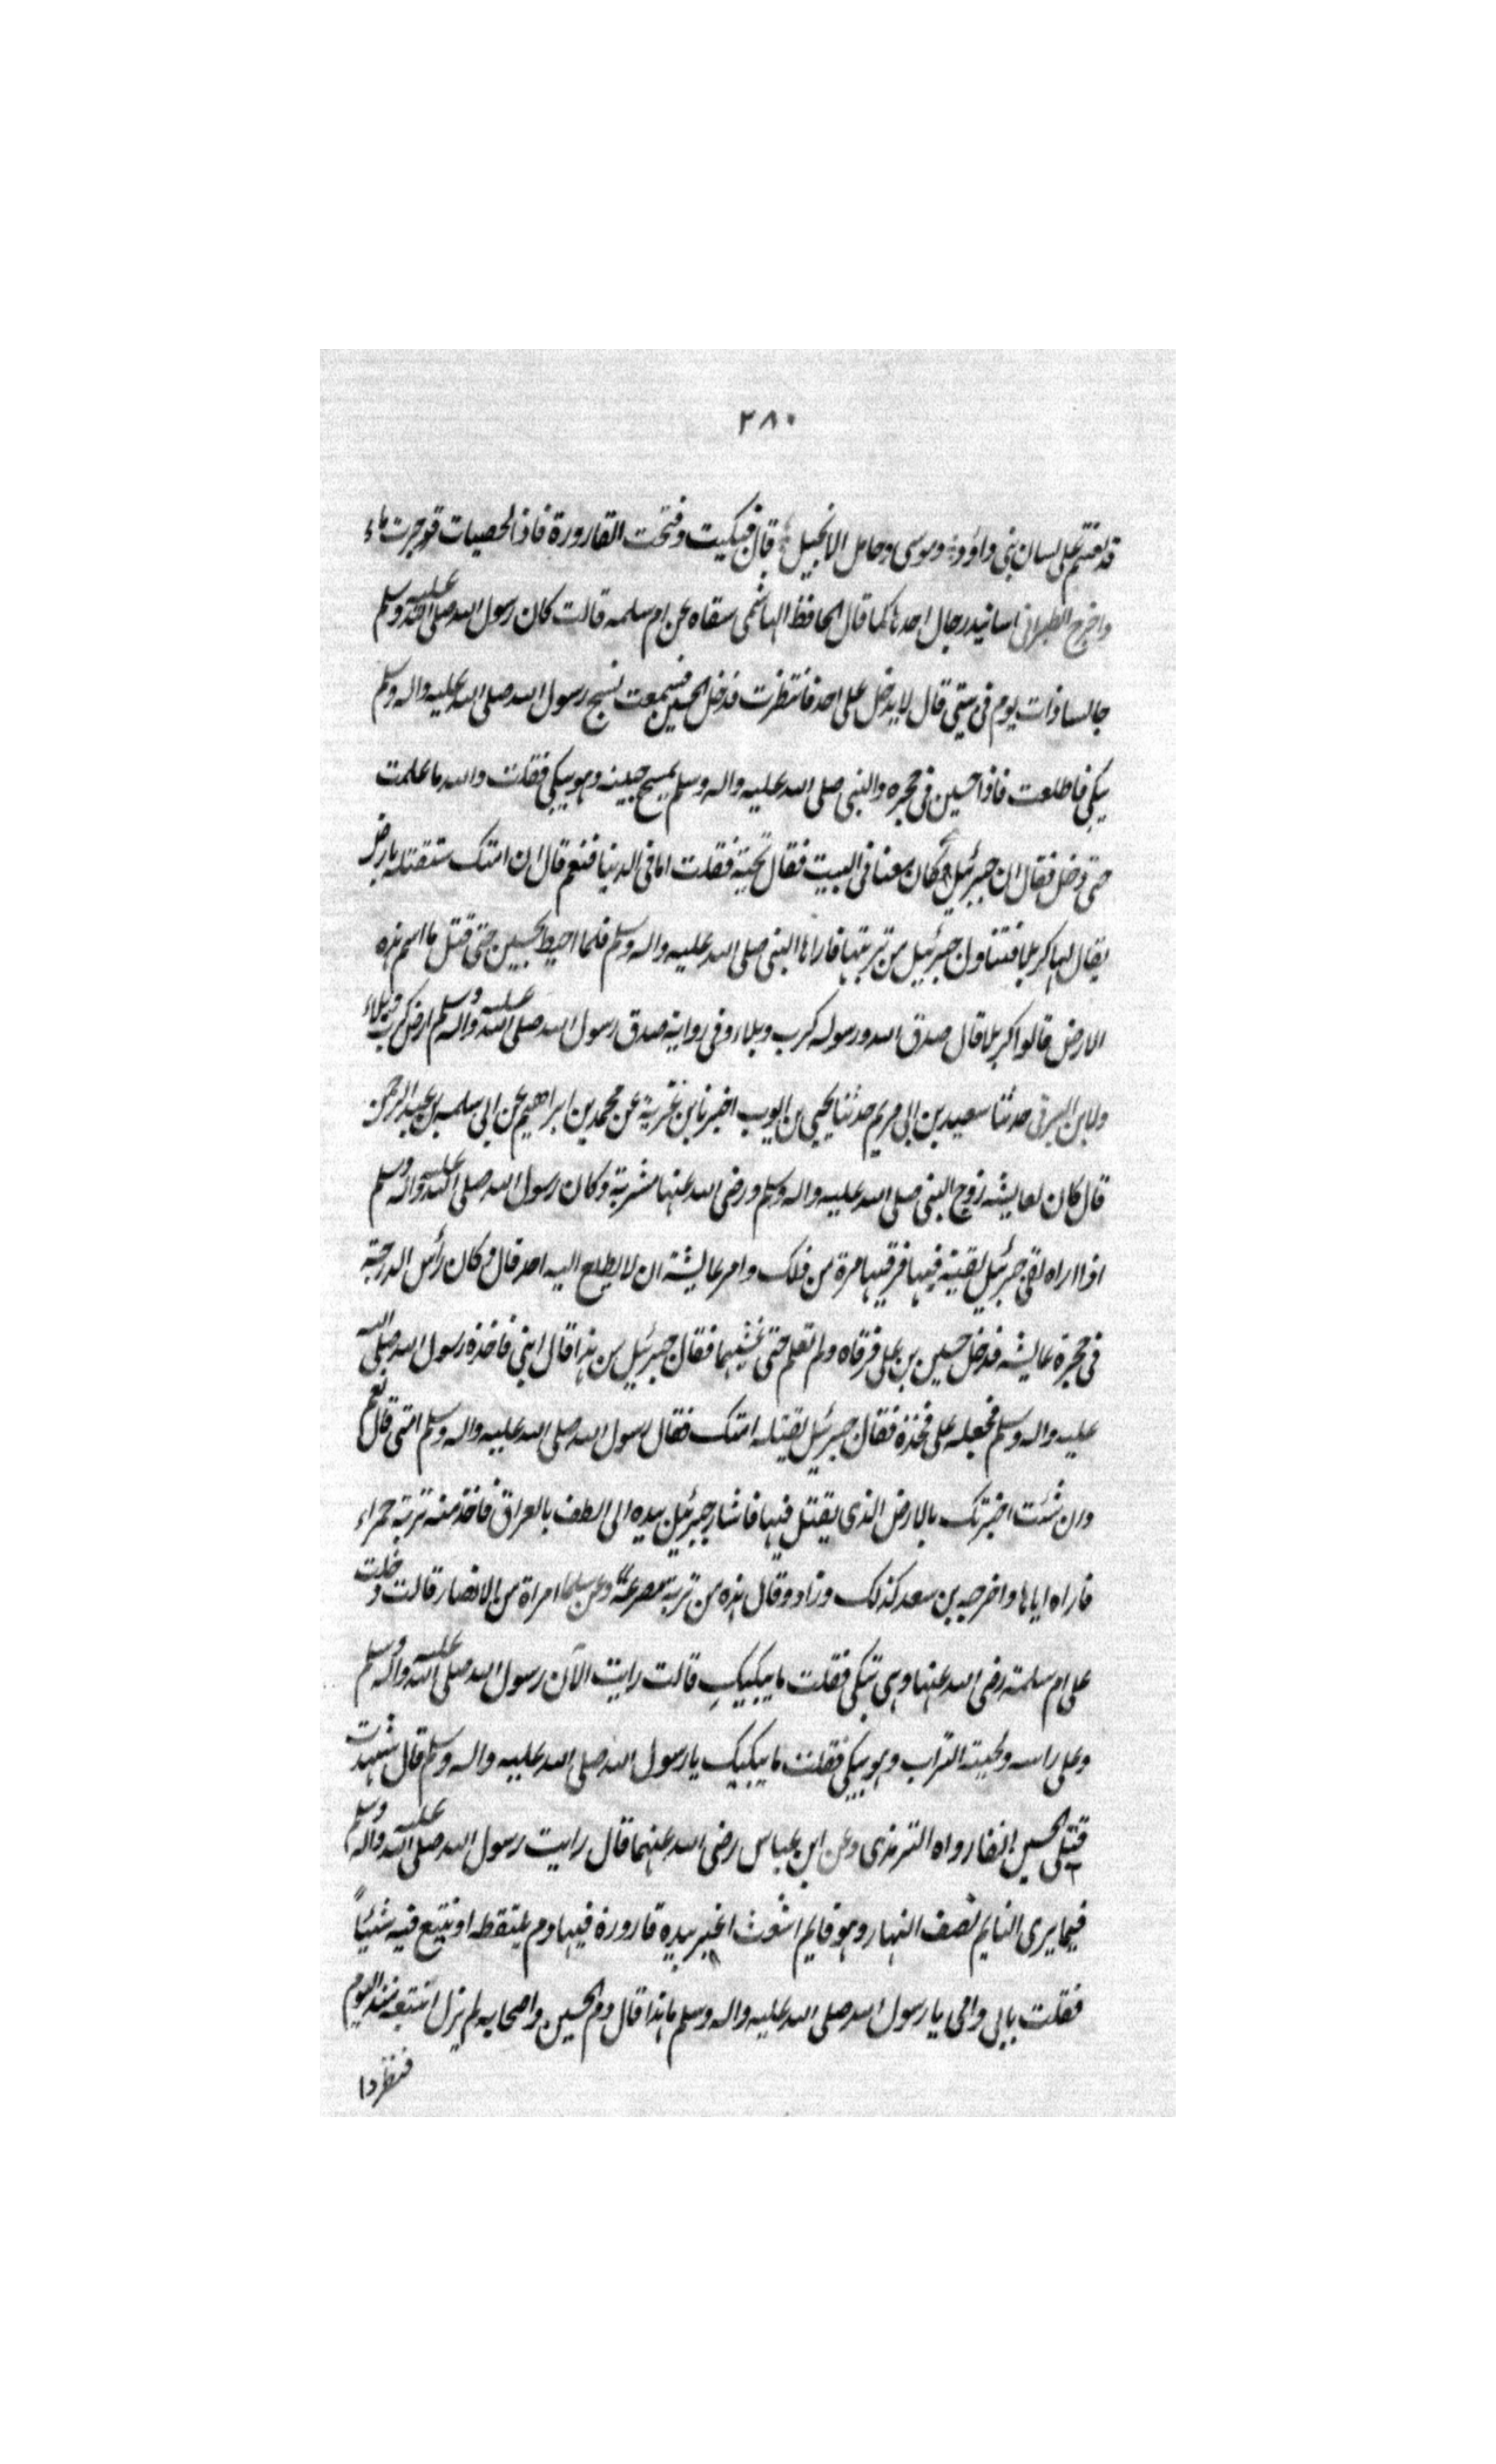 ٢٨٠
قد لعنتم على لسان بنى داؤد وموسى وحامل الانجيل قال فبكيت وفتحت القارورة فاذا لحصيات قد جرت ماء
واخرج الطبرانى اسانيد رجال احدها كما قال الحافظ الهاشمى سقاه عن ام سلمه قالت كان رسول الله صلى الله عليه وسلم
جالسا ذات يوم فى بيتى قال لا يدخل على احد فانتظرت فدخل الحسين فسمعت نسج رسول الله صلى الله عليه واله وسلم
يبكى فاطلعت فاذا حسين فى حجره والنبى صلى الله عليه واله وسلم يمسح جبينه وهو يبكى فقلت والله ما علمت
حتى دخل فقال ان جبرئيل كان معنا فى البيت فقال تحبه فقلت اما فى الدنيا فنعم قال ان امتك ستقتله بارض
يقال لها كربلا فتناول جبرئيل من تربتها فاراها النبى صلى الله عليه واله وسلم فلما احيط بحسين حتى قتل ما اسم هذه
الارض قالوا كربلا قال صدق الله ورسوله كرب وبلاء وفى رواية صدق رسول الله صلى الله عليه واله وسلم ارض كرب وبلاء
ولابن البرقى حدثنا سعيد بن ابى مريم حدثنا يحيى بن ايوب اخبرنا بن غزية عن محمد بن ابراهيم عن ابى سلمه بن عبد الرحمن
قال كان لعايشه زوج النبى صلى الله عليه واله وسلم ورضى الله عنها مشربة وكان رسول الله صلى الله عليه واله وسلم
اذا اراه لقى جبرئيل لقيه فيها فرقيها مرة من ذلك وامر عايشة ان لا يطلع اليه احد قال وكان رأس الدرجة
فى حجرة عايشه فدخل حسين بن على فرقاه ولم تعلم حتى غشيهما فقال جبرئيل من هذا قال ابنى فاخذه رسول الله صلى الله
عليه واله وسلم فجعله على فخذه فقال جبرئيل يقتله امتك فقال رسول الله صلى الله عليه واله وسلم امتى قال نعم
وان شئت اخبرتك بالارض الذى يقتل فيها فاشار جبرئيل بيده الى الطف بالعراق فاخذ منه تربة حمراء
فاراه اياها واخرجه بن سعد كذلك وزاد وقال هذه من تربة مصرعه وعن سلما امراة من الانصار قالت دخلت
على ام سلمة رضى الله عنها وهى تبكى فقلت ما يبكيكِ قالت رايت الآن رسول الله صلى الله عليه واله وسلم
وعلى راسه ولحيته التراب وهو يبكى فقلت ما يبكيك يا رسول الله صلى الله عليه واله وسلم قال شهدت
قتل الحسين انفا رواه الترمذى وعن ابن عباس رضى الله عنهما قال رايت رسول الله صلى الله عليه واله وسلم
فيما يرى النايم نصف النهار وهو قايم اشعث اغبر بيده قارورة فيها دم يلتقطه او يتتبع فيه شيئاً
فقلت بابى وامى يا رسول الله صلى الله عليه واله وسلم ما هذا قال دم الحسين واصحابه لم يزل اتتبعه منذ اليوم
فنظروا